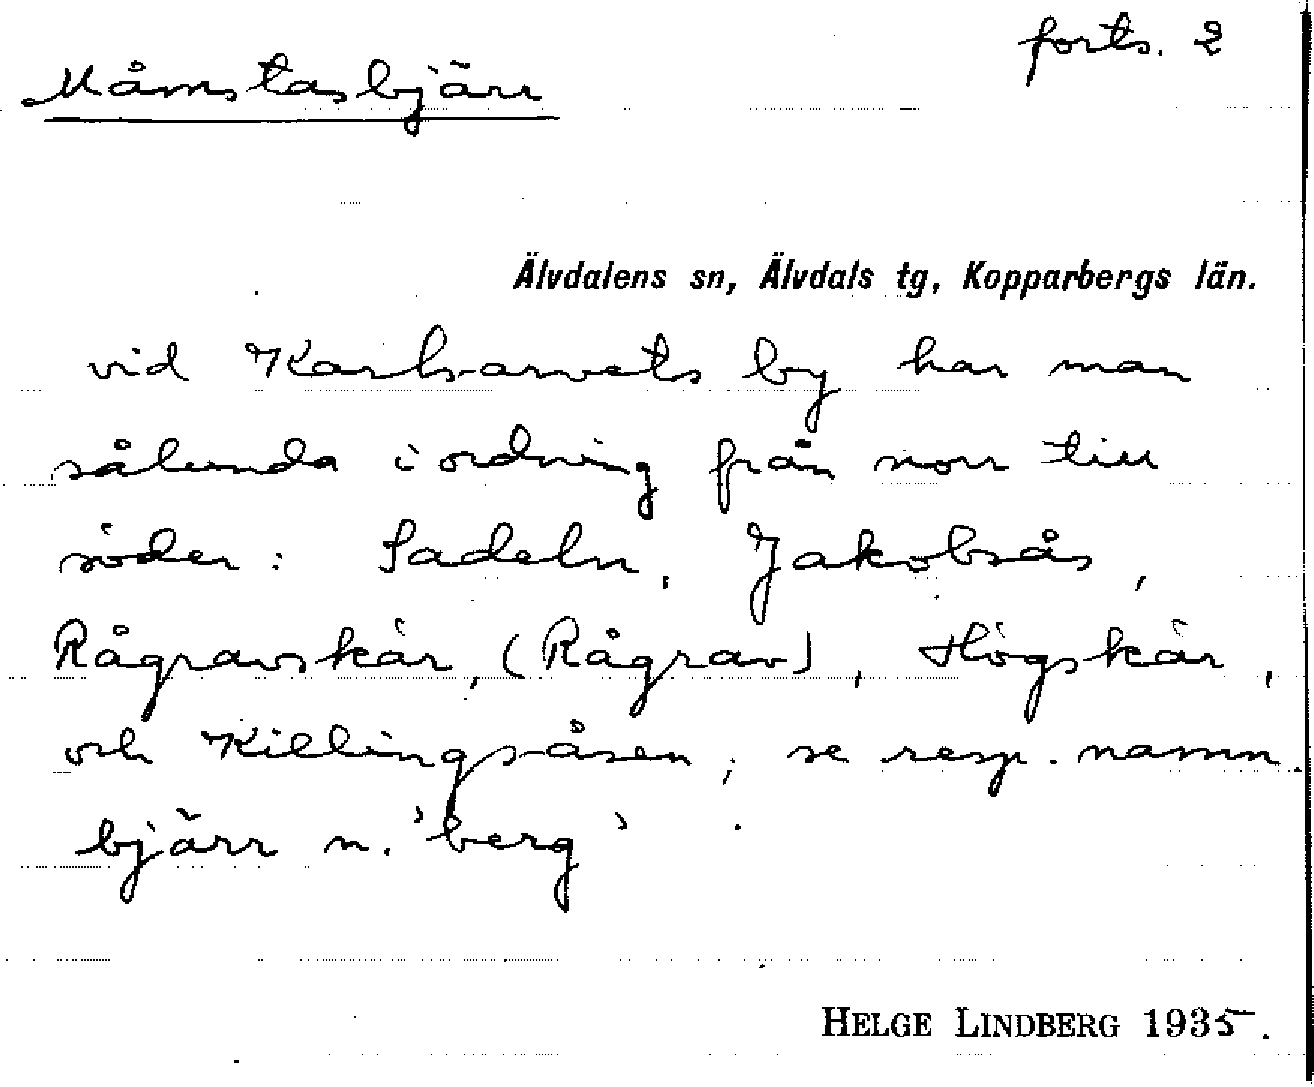 forts. 2
Måmstasbjärr
Älvdalens sn, Älvdals tg, Kopparbergs län.
vid Karlsarvets by har man
sålunda i ordning från norr till
söder: Sadeln, Jakobsås,
Rågravskär, (Rågrav), Högskär,
och Killingsåsen, se resp. namn.
bjärr n. 'berg'.
HELGE LINDBERG 1935.